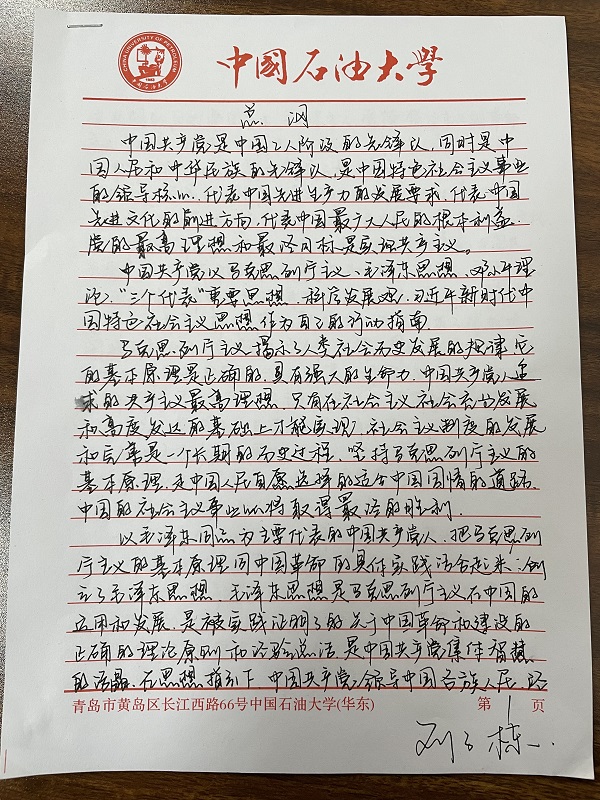 CHINA UNIVERSITY OF PETROLEUM
1953
中國石油大學
总 纲
中国共产党是中国工人阶级的先锋队，同时是中
国人民和中华民族的先锋队，是中国特色社会主义事业
的领导核心，代表中国先进生产力的发展要求，代表中国
先进文化的前进方向，代表中国最广大人民的根本利益。
党的最高理想和最终目标是实现共产主义。
中国共产党以马克思列宁主义、毛泽东思想、邓小平理
论、“三个代表”重要思想、科学发展观、习近平新时代中
国特色社会主义思想作为自己的行动指南
马克思列宁主义揭示了人类社会历史发展的规律，它
的基本原理是正确的，具有强大的生命力，中国共产党人追
求的共产主义最高理想，只有在社会主义社会充分发展
和高度发达的基础上才能实现，社会主义制度的发展
和完善是一个长期的历史过程，坚持马克思列宁主义的
基本原理，走中国人民自愿选择的适合中国国情的道路，
中国的社会主义事业必将取得最终的胜利
以毛泽东同志为主要代表的中国共产党人，把马克思列
宁主义的基本原理同中国革命的具体实践结合起来，创
立了毛泽东思想，毛泽东思想是马克思列宁主义在中国的
运用和发展，是被实践证明了的关于中国革命和建设的
正确的理论原则和经验总结，是中国共产党集体智慧
的结晶，在思想指引下，中国共产党领导中国各族人民，经
青岛市黄岛区长江西路66号中国石油大学(华东) 第 1 页